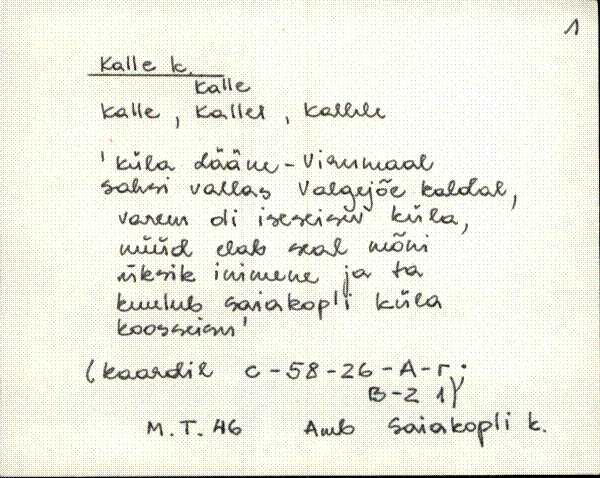 1
Kalle k.
kalle
kalle, kallel, kallele
'küla Lääne-Virumaal
saksi vallas Valgejõe kaldal,
varem oli iseseisev küla,
nüüd elab seal mõni
üksik inimene ja ta
kuulub saiakopli küla
koosseisu'
(kaardil C-58-26-A-г;
B-2 1)
M.T. 46 Amb Saiakopli k.